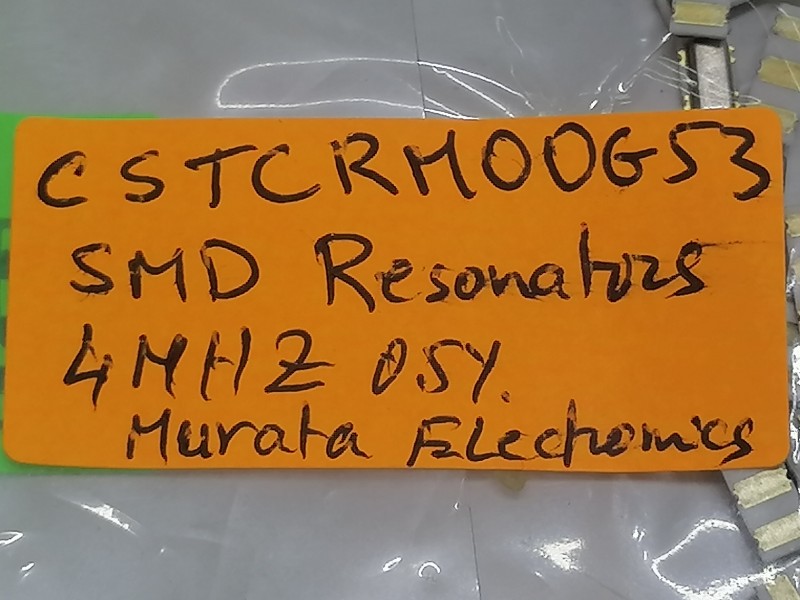 CSTCRM00G53
SMD Resonators
4MHZ 05%.
Murata Electronics